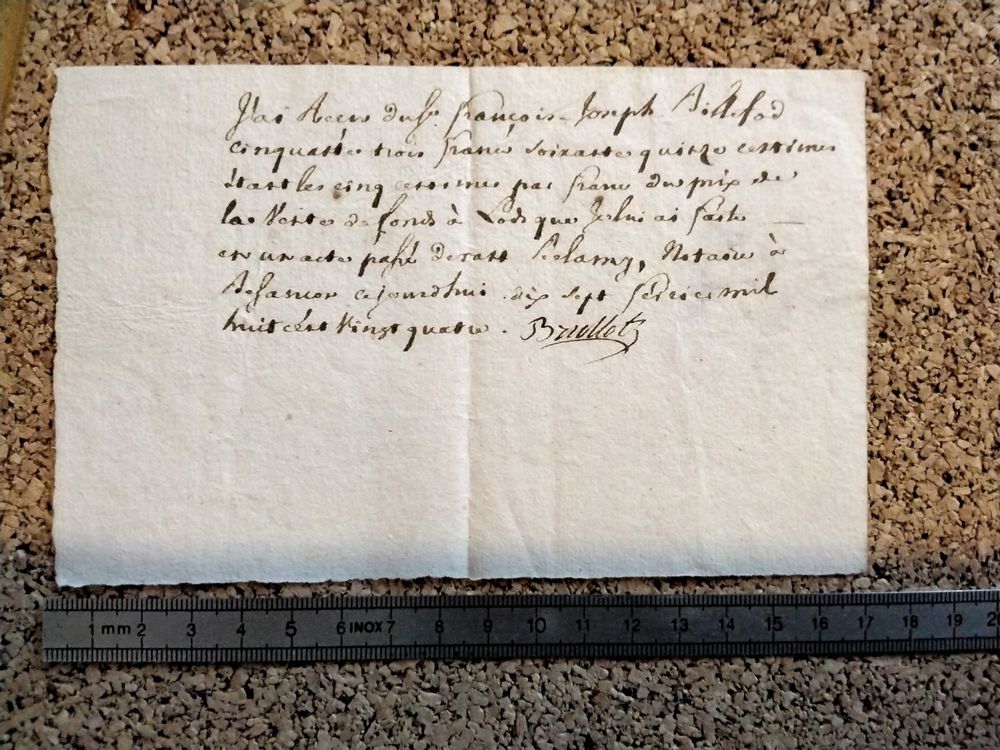 J'ai Recu du Sr. françois Joseph
cinquante trois franc soixante quinze centimes
étant les cinq centimes par franc du prix de
la Vente de fond à Lods que Je lui ai faite
en un acte passé devant Belamy, Notaire à
Besancon cejourdhui dix sept février mil
huit cent Vingt quatre. Brullot
1 mm 2 3 4 5 6 INOX 7 8 9 10 11 12 13 14 15 16 17 18 19